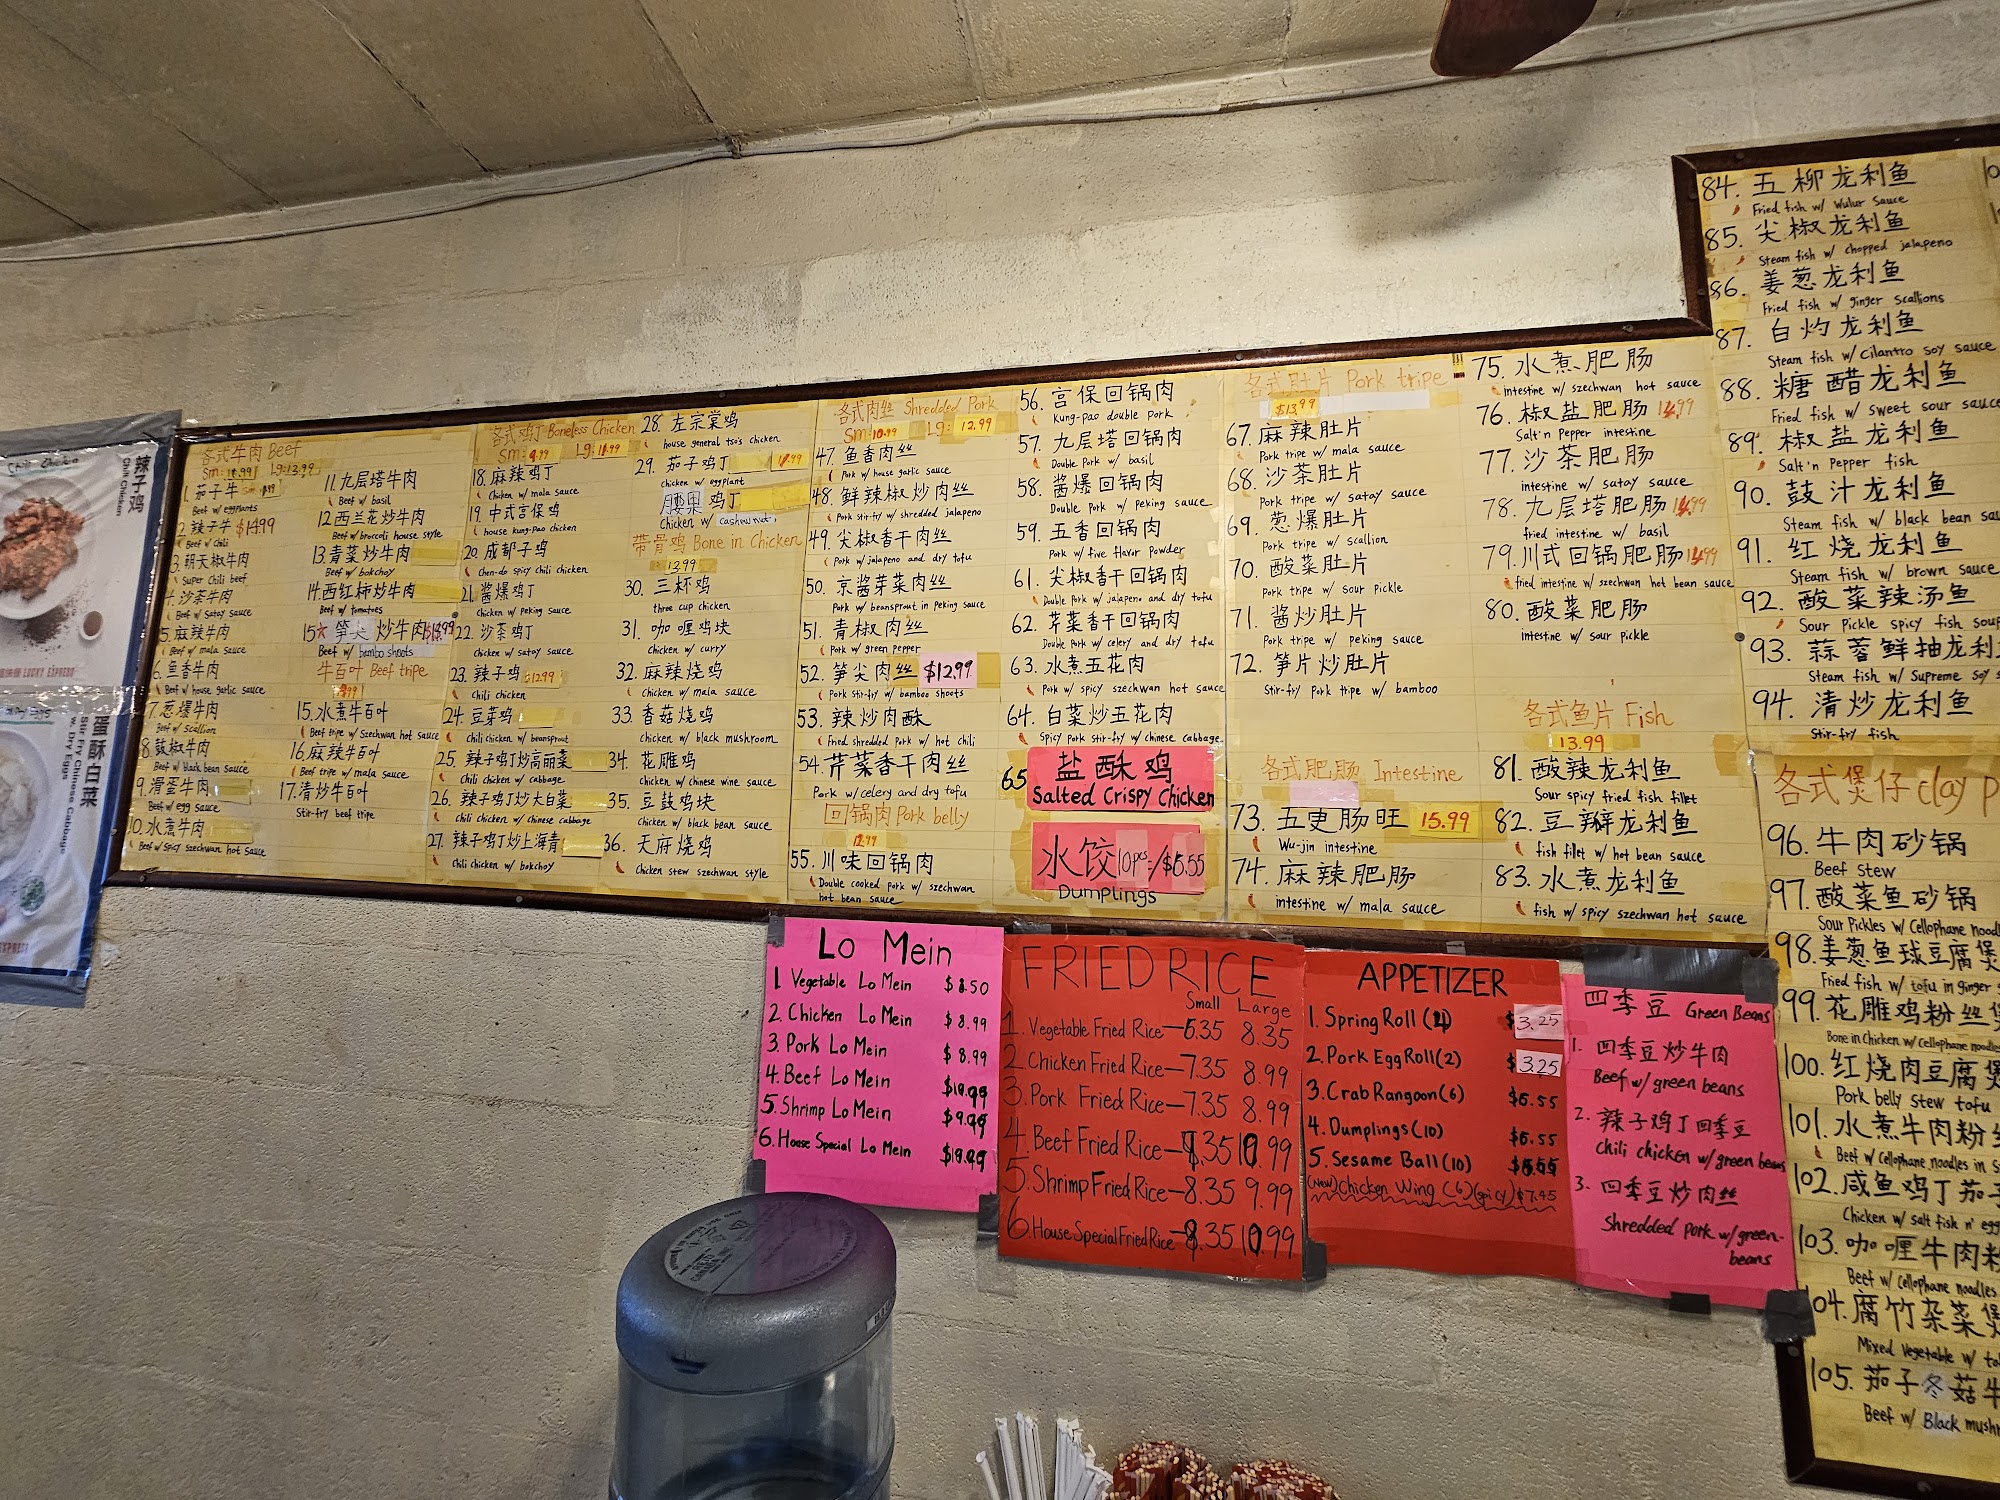 Chili Chicken
辣子鸡
Chili Chicken
LUCKY EXPRESS
蛋酥白菜
Stir Fry Chinese Cabbage
w. Dry Eggs
EXPRESS
各式牛肉 Beef
Sm: 10.99 Lg: 12.99
1. 茄子牛
Beef w/ eggplants
2. 辣子牛 $14.99
Beef w/ chili
3. 朝天椒牛肉
Super Chili beef
4. 沙茶牛肉
Beef w/ Satay sauce
5. 麻辣牛肉
Beef w/ mala sauce
6. 鱼香牛肉
Beef w/ house garlic sauce
7. 葱爆牛肉
Beef w/ scallion
8. 鼓椒牛肉
Beef w/ black bean sauce
9. 滑蛋牛肉
Beef w/ egg sauce
10. 水煮牛肉
Beef w/ spicy szechwan hot sauce
11. 九层塔牛肉
Beef w/ basil
12. 西兰花炒牛肉
Beef w/ broccoli house style
13. 青菜炒牛肉
Beef w/ bokchoy
14. 西红柿炒牛肉
Beef w/ tomatoes
15 笋尖炒牛肉
Beef w/ bamboo shoots
牛百叶 Beef tripe
15. 水煮牛百叶
Beef tripe w/ Szechwan hot sauce
16. 麻辣牛百叶
Beef tripe w/ mala sauce
17. 清炒牛百叶
Stir-fry beef tripe
各式鸡丁 Boneless Chicken
Sm: 9.99 Lg: 11.99
18. 麻辣鸡丁
Chicken w/ mala sauce
19. 中式宫保鸡
house kung-pao chicken
20. 成都子鸡
Chen-do spicy chili chicken
21. 酱爆鸡丁
Chicken w/ peking sauce
22. 沙茶鸡丁
Chicken w/ satay sauce
23. 辣子鸡 12.99
Chili chicken
24. 豆芽鸡
Chili chicken w/ beansprout
25. 辣子鸡丁炒高丽菜
Chili chicken w/ cabbage
26. 辣子鸡丁炒大白菜
Chili chicken w/ chinese cabbage
27. 辣子鸡丁炒上海青
Chili chicken w/ bokchoy
28. 左宗棠鸡
house general tso's chicken
29. 茄子鸡丁 11.99
Chicken w/ eggplant
腰果 鸡丁
Chicken w/ cashew nut
带骨鸡 Bone in Chicken
13.99
30. 三杯鸡
three cup chicken
31. 咖喱鸡块
Chicken w/ curry
32. 麻辣烧鸡
Chicken w/ mala sauce
33. 香菇烧鸡
Chicken w/ black mushroom
34. 花雕鸡
Chicken w/ chinese wine sauce
35. 豆鼓鸡块
Chicken w/ black bean sauce
36. 天府烧鸡
Chicken stew szechwan style
各式肉丝 Shredded Pork
Sm: 10.99 Lg: 12.99
47. 鱼香肉丝
Pork w/ house garlic sauce
48. 鲜辣椒炒肉丝
Pork stir-fry w/ shredded jalapeno
49. 尖椒香干肉丝
Pork w/ jalapeno and dry tofu
50. 京酱芽菜肉丝
Pork w/ beansprout in peking sauce
51. 青椒肉丝
Pork w/ green pepper
52. 笋尖肉丝 $12.99
Pork stir-fry w/ bamboo shoots
53. 辣炒肉酥
Fried shredded Pork w/ hot chili
54. 芹菜香干肉丝
Pork w/ celery and dry tofu
回锅肉 Pork belly
12.99
55. 川味回锅肉
Double cooked pork w/ szechwan
hot bean sauce
56. 宫保回锅肉
Kung-pao double pork
57. 九层塔回锅肉
Double Pork w/ basil
58. 酱爆回锅肉
Double Pork w/ peking sauce
59. 五香回锅肉
Pork w/ five flavor powder
61. 尖椒香干回锅肉
Double Pork w/ jalapeno and dry tofu
62. 芹菜香干回锅肉
Double Pork w/ celery and dry tofu
63. 水煮五花肉
Pork w/ spicy szechwan hot sauce
64. 白菜炒五花肉
Spicy Pork stir-fry w/ chinese cabbage
65 盐酥鸡
Salted Crispy Chicken
水饺10pcs/$6.55
Dumplings
各式肚片 Pork tripe
$13.99
67. 麻辣肚片
Pork tripe w/ mala sauce
68. 沙茶肚片
Pork tripe w/ satay sauce
69. 葱爆肚片
Pork tripe w/ scallion
70. 酸菜肚片
Pork tripe w/ sour Pickle
71. 酱炒肚片
Pork tripe w/ peking sauce
72. 笋片炒肚片
Stir-fry Pork tripe w/ bamboo
各式肥肠 Intestine
73. 五更肠旺 15.99
Wu-jin intestine
74. 麻辣肥肠
intestine w/ mala sauce
75. 水煮肥肠
intestine w/ szechwan hot sauce
76. 椒盐肥肠 14.99
Salt'n Pepper intestine
77. 沙茶肥肠
intestine w/ satay sauce
78. 九层塔肥肠 14.99
fried intestine w/ basil
79. 川式回锅肥肠 14.99
fried intestine w/ szechwan hot bean sauce
80. 酸菜肥肠
intestine w/ sour pickle
各式鱼片 Fish
13.99
81. 酸辣龙利鱼
Sour spicy fried fish fillet
82. 豆瓣龙利鱼
fish fillet w/ hot bean sauce
83. 水煮龙利鱼
fish w/ spicy szechwan hot sauce
84. 五柳龙利鱼
Fried fish w/ Wulur Sauce
85. 尖椒龙利鱼
Steam fish w/ chopped jalapeno
86. 姜葱龙利鱼
Fried fish w/ ginger scallions
87. 白灼龙利鱼
Steam fish w/ Cilantro soy sauce
88. 糖醋龙利鱼
Fried fish w/ sweet sour sauce
89. 椒盐龙利鱼
Salt'n Pepper fish
90. 鼓汁龙利鱼
Steam fish w/ black bean
91. 红烧龙利鱼
Steam fish w/ brown sauce
92. 酸菜辣汤鱼
Sour Pickle spicy fish soup
93. 蒜蓉鲜抽龙利
Steam fish w/ Supreme soy
94. 清炒龙利鱼
Stir-fry fish
各式煲仔 clay p
96. 牛肉砂锅
Beef Stew
97. 酸菜鱼砂锅
Sour Pickles w/ Cellophane
98. 姜葱鱼球豆腐煲
Fried fish w/ tofu in ginger
99. 花雕鸡粉丝煲
Bone in Chicken w/ Cellophane noodles
100. 红烧肉豆腐煲
Pork belly stew tofu
101. 水煮牛肉粉丝
Beef w/ Cellophane noodles in
102. 咸鱼鸡丁茄子
Chicken w/ salt fish n'
103. 咖喱牛肉粉
Beef w/ Cellophane noodles
104. 腐竹杂菜煲
Mixed Vegetable w/
105. 茄子冬菇牛
Beef w/ Black
Lo Mein
1. Vegetable Lo Mein $8.50
2. Chicken Lo Mein $8.99
3. Pork Lo Mein $8.99
4. Beef Lo Mein $10.99
5. Shrimp Lo Mein $9.99
6. House Special Lo Mein $10.99
FRIED RICE
Small Large
1. Vegetable Fried Rice—6.35 8.35
2. Chicken Fried Rice—7.35 8.99
3. Pork Fried Rice—7.35 8.99
4. Beef Fried Rice—9.35 10.99
5. Shrimp Fried Rice—8.35 9.99
6. House Special Fried Rice—9.35 10.99
APPETIZER
1. Spring Roll (4) $3.25
2. Pork Egg Roll (2) $3.25
3. Crab Rangoon (6) $6.55
4. Dumplings (10) $6.55
5. Sesame Ball (10) $6.55
(New) Chicken Wing (6) (spicy) $7.45
四季豆 Green Beans
1. 四季豆炒牛肉
Beef w/ green beans
2. 辣子鸡丁四季豆
Chili chicken w/ green beans
3. 四季豆炒肉丝
Shredded pork w/ green-
beans